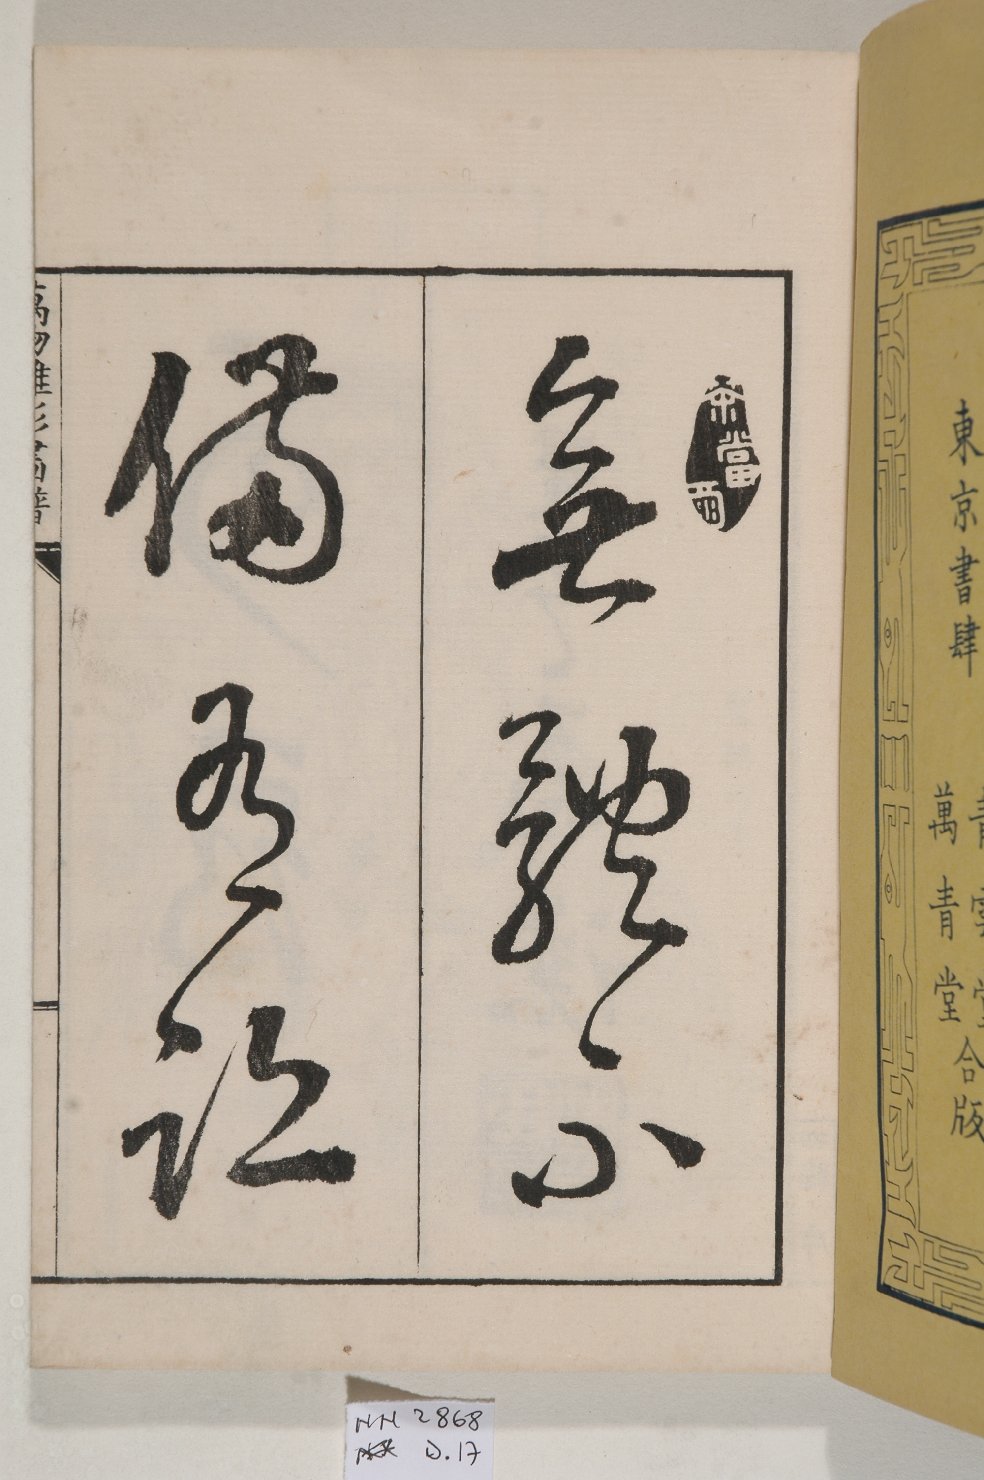 東京書肆
青雲堂
萬青堂
合版
無體不
備有
萬物雛形畫譜
NH 2868
D.17